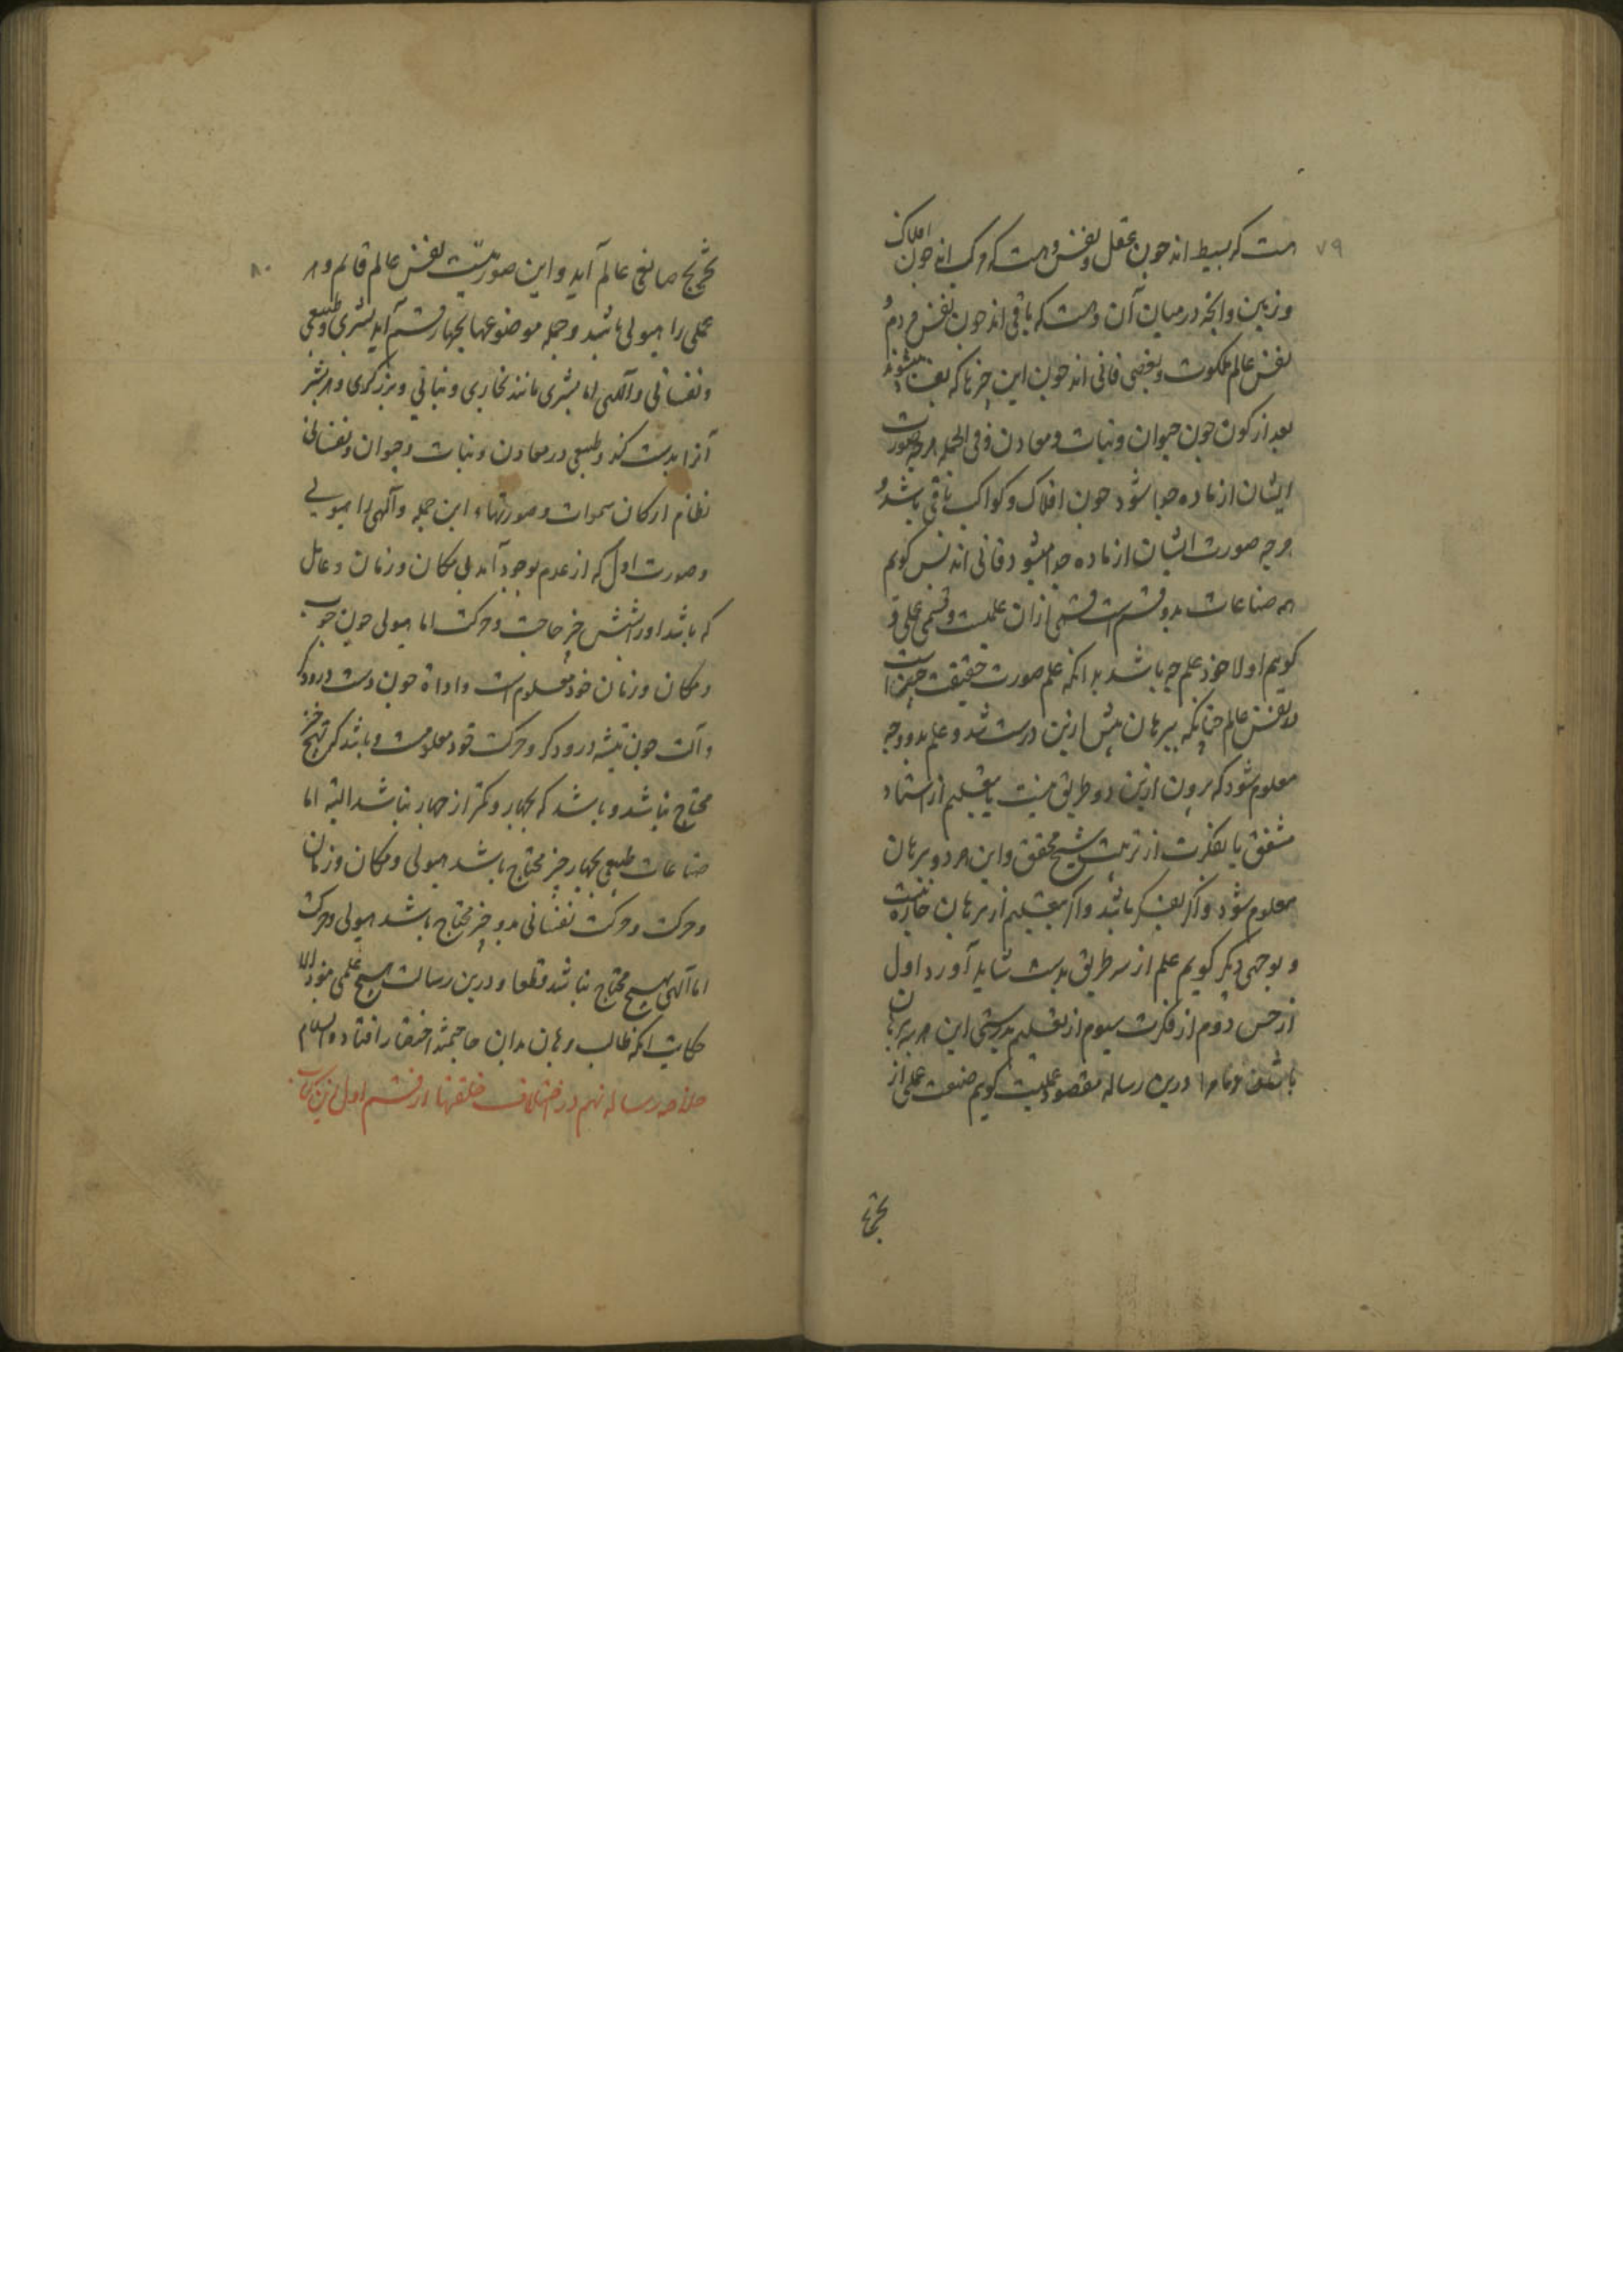 ۷۹
هست که بسیط اند چون عقل و نفس و هست که مرکب اند چون افلاک
و زمین و انچه در میان آن و هست که باقی اند چون نفس مردم و
نفس عالم ملکوت و بعضی فانی اند چون این چیزها که بعضا میشوند
بعد از کون چون حیوان و نبات و معادن و فی الجمله هرچه صورت
ایشان از ماده جدا نشود چون افلاک و کواکب باقی باشد و
هرچه صورت ایشان از ماده جدا میشود فانی اند پس کویم
همه صناعات بدو قسم است قسمی ازان علمیست و قسمی عملی و
کویم اولا خود علم چه باشد بدانکه علم صورت حقیقت چیزهاست
در نفس عالم چنانکه ببرهان پیش ازین درست شد و علم بدو وجه
معلوم شود که برون ازین دو طریق نیست یا بتعلیم از استاد
مشفق یا بفکرت از تربیت شیخ محقق و این هر دو ببرهان
معلوم شود و اگر بفکر باشد و اگر بتعلیم از برهان خارج نیست
و بوجهی دیگر کویم علم از سه طریق بدست شاید آورد اول
از حس دوم از فکرت سیوم از تعلیم بدرستی این هر سه ببرهان
باشد و ما را درین رساله مقصود عملیست کویم صنعت عملی از
۸۰
صانعی عالم آید و این صورتیست نفس عالم قائم و هر
عملی را هیولی باشد و جمله موضوعها بچهار قسم آید بشری و طبیعی
و نفسانی و آلهی اما بشری مانند نجاری و نباتی و برزکری و هر بشر
آنرا بدست کند و طبیعی در معادن و نبات و حیوان و نفسانی
نظام ارکان سموات و صورتهاء این جمله و آلهی را هیولی
و صورت اول که از عدم بوجود آمد بی مکان و زمان و عامل
که باشد او را شش چیز حاجت و حرکت اما هیولی چون چوب
و مکان و زمان خود معلوم است و اداة چون دست درودکر
و آلت چون تیشه درودکر و حرکت خود معلومست و باشد که به پنج چیز
محتاج نباشد و باشد که بچهار و کمتر از چهار نباشد البته اما
صناعات طبیعی بچهار چیز محتاج باشد هیولی و مکان و زمان
و حرکت و حرکت نفسانی بدو چیز محتاج باشد هیولی و حرکت
اما آلهی بهیچ محتاج نباشد قطعا و درین رسالت هیچ علمی نبود الا
حکایت انکه طالب برهان بدان حاجتمند اختصار افتاد والسلام
خلاصه رساله نهم در اختلاف خلقها از قسم اول ازین کتاب